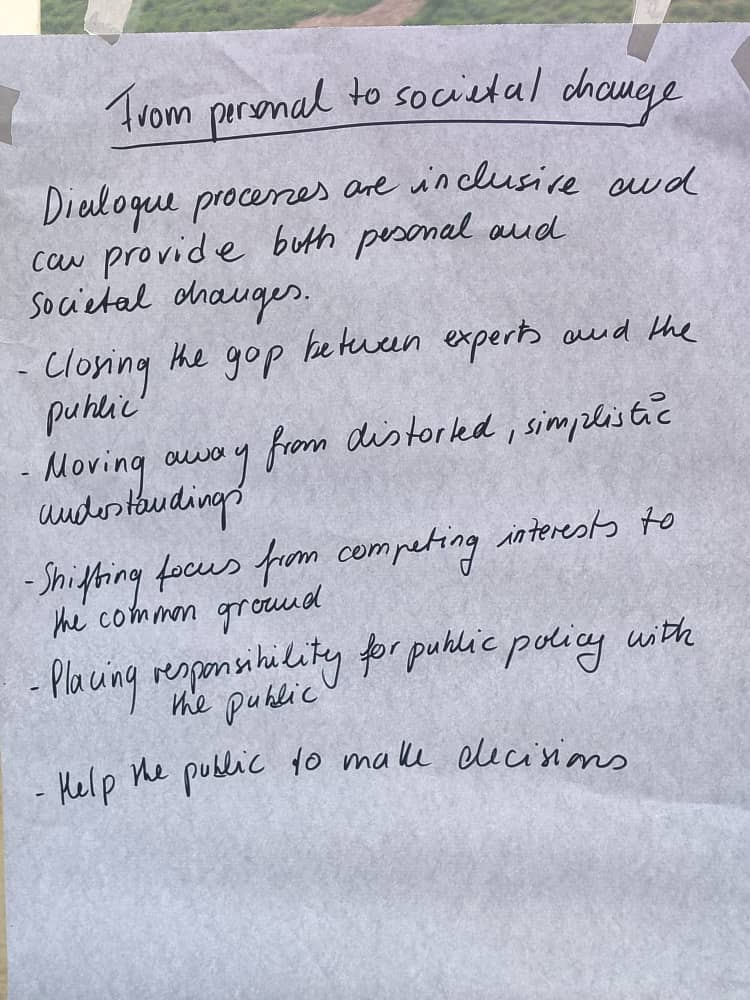 From personal to societal change
Dialogue processes are inclusive and
can provide both pesonal and
societal changes.
- Closing the gap between experts and the
public
- Moving away from distorted, simplistic
understandings
- Shifting focus from competing interests to
the common ground
- Placing responsibility for public policy with
the public
- Help the public to make decisions